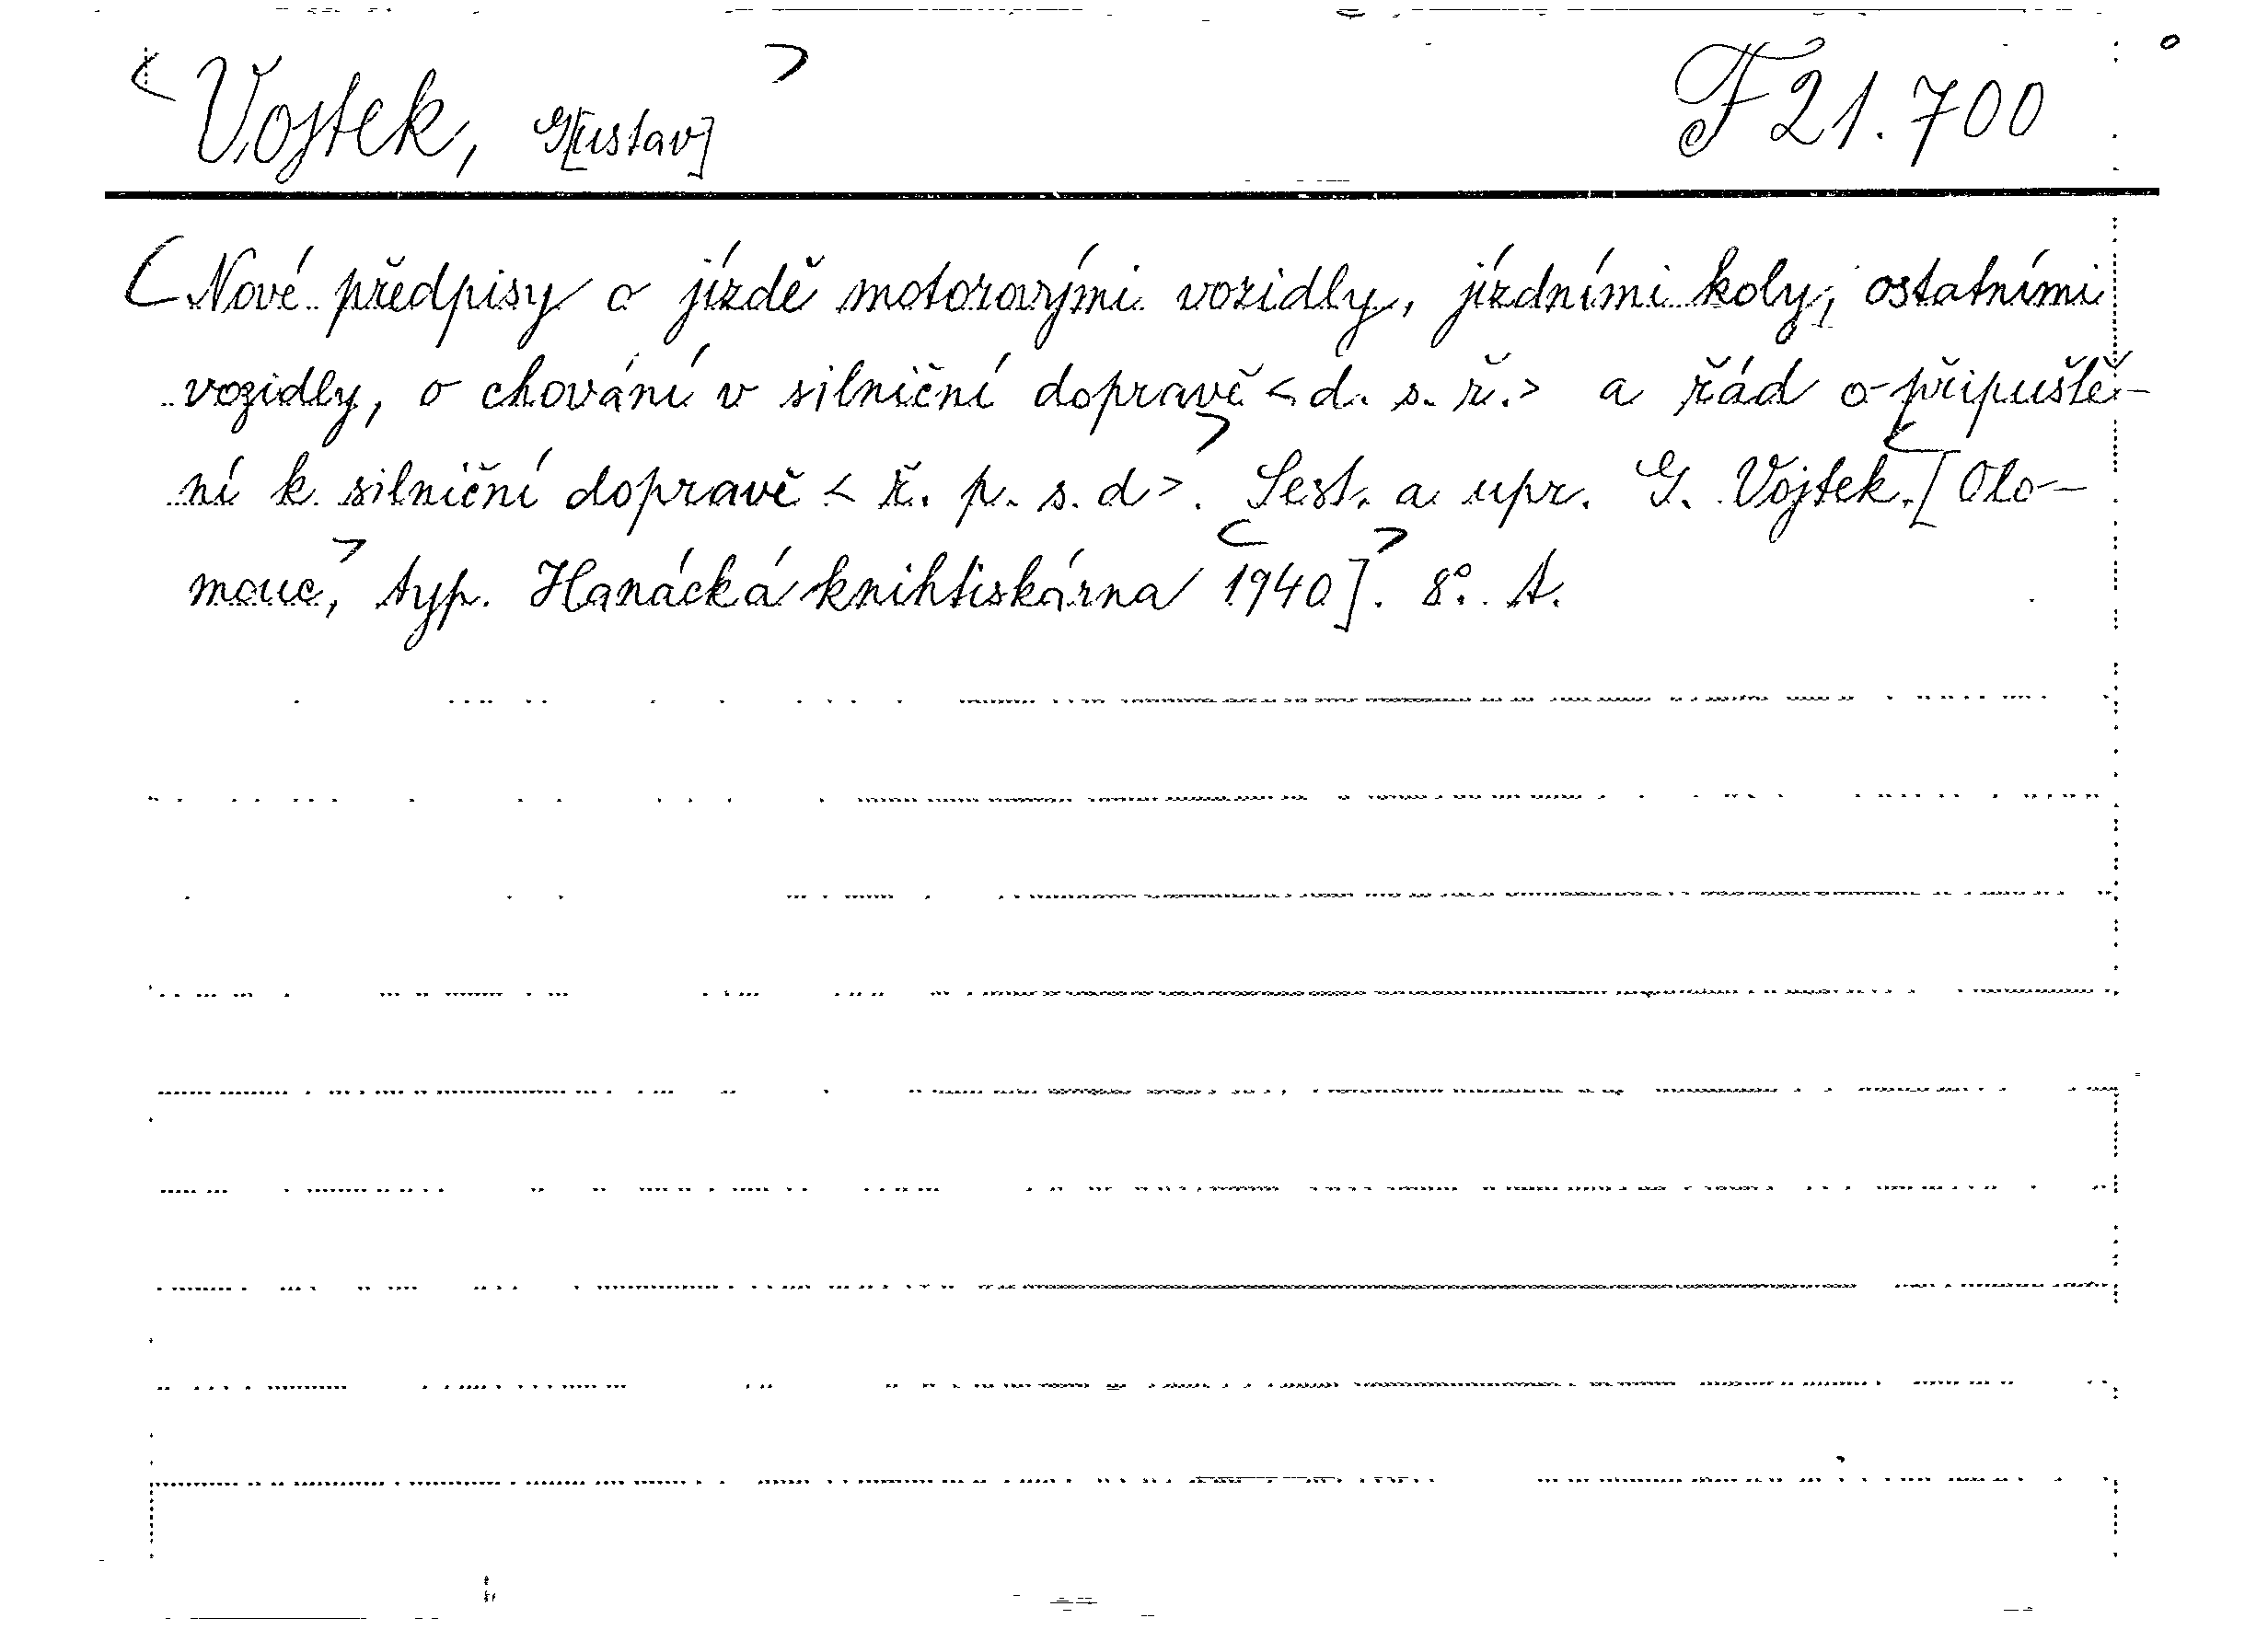 Vojtek, G[ustav] F 21.700
Nové předpisy o jízdě motorovými vozidly, jízdními koly, ostatními
vozidly, o chování v silniční dopravě <d. s. ř.> a řád o připuště-
ní k silniční dopravě < ř. p. s. d>. Sest. a upr. G. Vojtek. [Olo-
mouc, typ. Hanácká knihtiskárna 1940]. 8°. A.